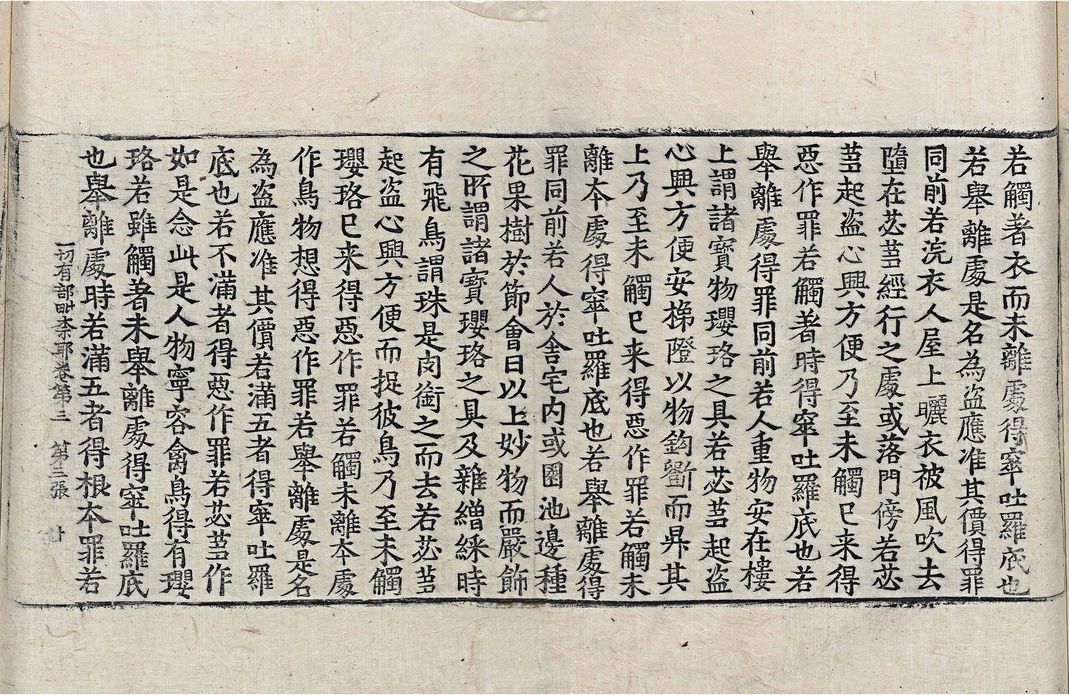 若觸著衣而未離處得窣吐羅底也
若舉離處是名為盗應准其價得罪
同前若浣衣人屋上曬衣被風吹去
墮在苾芻經行之處或落門傍若苾
芻起盗心興方便乃至未觸已来得
惡作罪若觸著時得窣吐羅底也若
舉離處得罪同前若人重物安在樓
上謂諸寶物瓔珞之具若苾芻起盗
心興方便安梯隥以物鉤斸而昇其
上乃至未觸已来得惡作罪若觸未
離本處得窣吐羅底也若舉離處得
罪同前若人於舍宅内或園池邊種
花果樹於節會日以上妙物而嚴飾
之所謂諸寶瓔珞之具及雜繒綵時
有飛鳥謂珠是肉銜之而去若苾芻
起盗心興方便而捉彼鳥乃至未觸
瓔珞已来得惡作罪若觸未離本處
作鳥物想得惡作罪若舉離處是名
為盗應准其價若滿五者得窣吐羅
底也若不滿者得惡作罪若苾芻作
如是念此是人物寧容禽鳥得有瓔
珞若雖觸著未舉離處得窣吐羅底
也舉離處時若滿五者得根本罪若
一切有部毗奈耶卷第三 第三張 廿